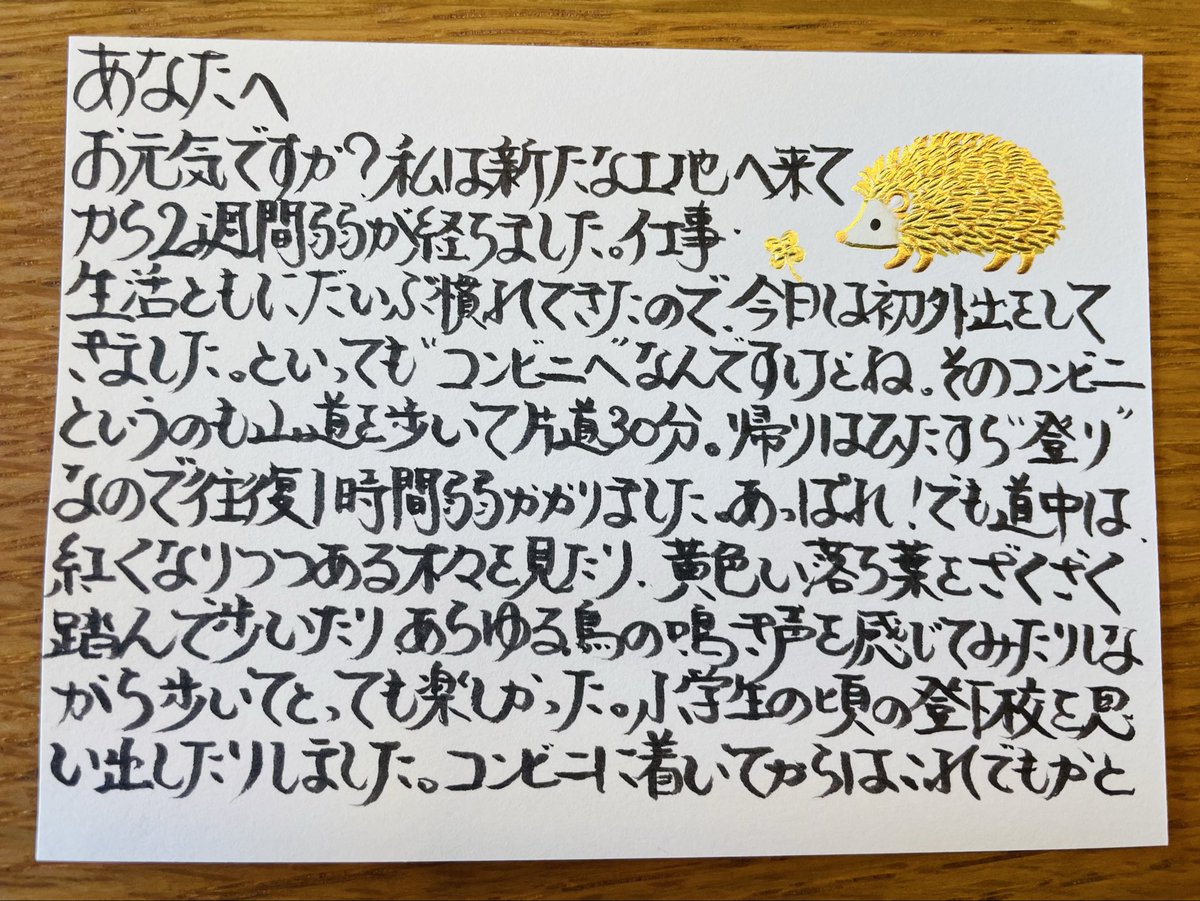 あなたへ
お元気ですか？私は新たな土地へ来て
から2週間弱が経ちました。仕事・
生活ともにだいぶ慣れてきたので、今日は初外出をして
きました。といっても"コンビニへ"なんですけどね。そのコンビニ
というのも山道を歩いて片道30分。帰りはひたすら"登り"
なので往復1時間弱かかりました。あっぱれ！でも道中は、
紅くなりつつある木々を見たり、黄色い落ち葉をざくざく
踏んで歩いたり、あらゆる鳥の鳴き声を感じてみたりしな
がら歩いてとっても楽しかった。小学生の頃の登下校を思
い出したりしました。コンビニに着いてからはこれでもかと